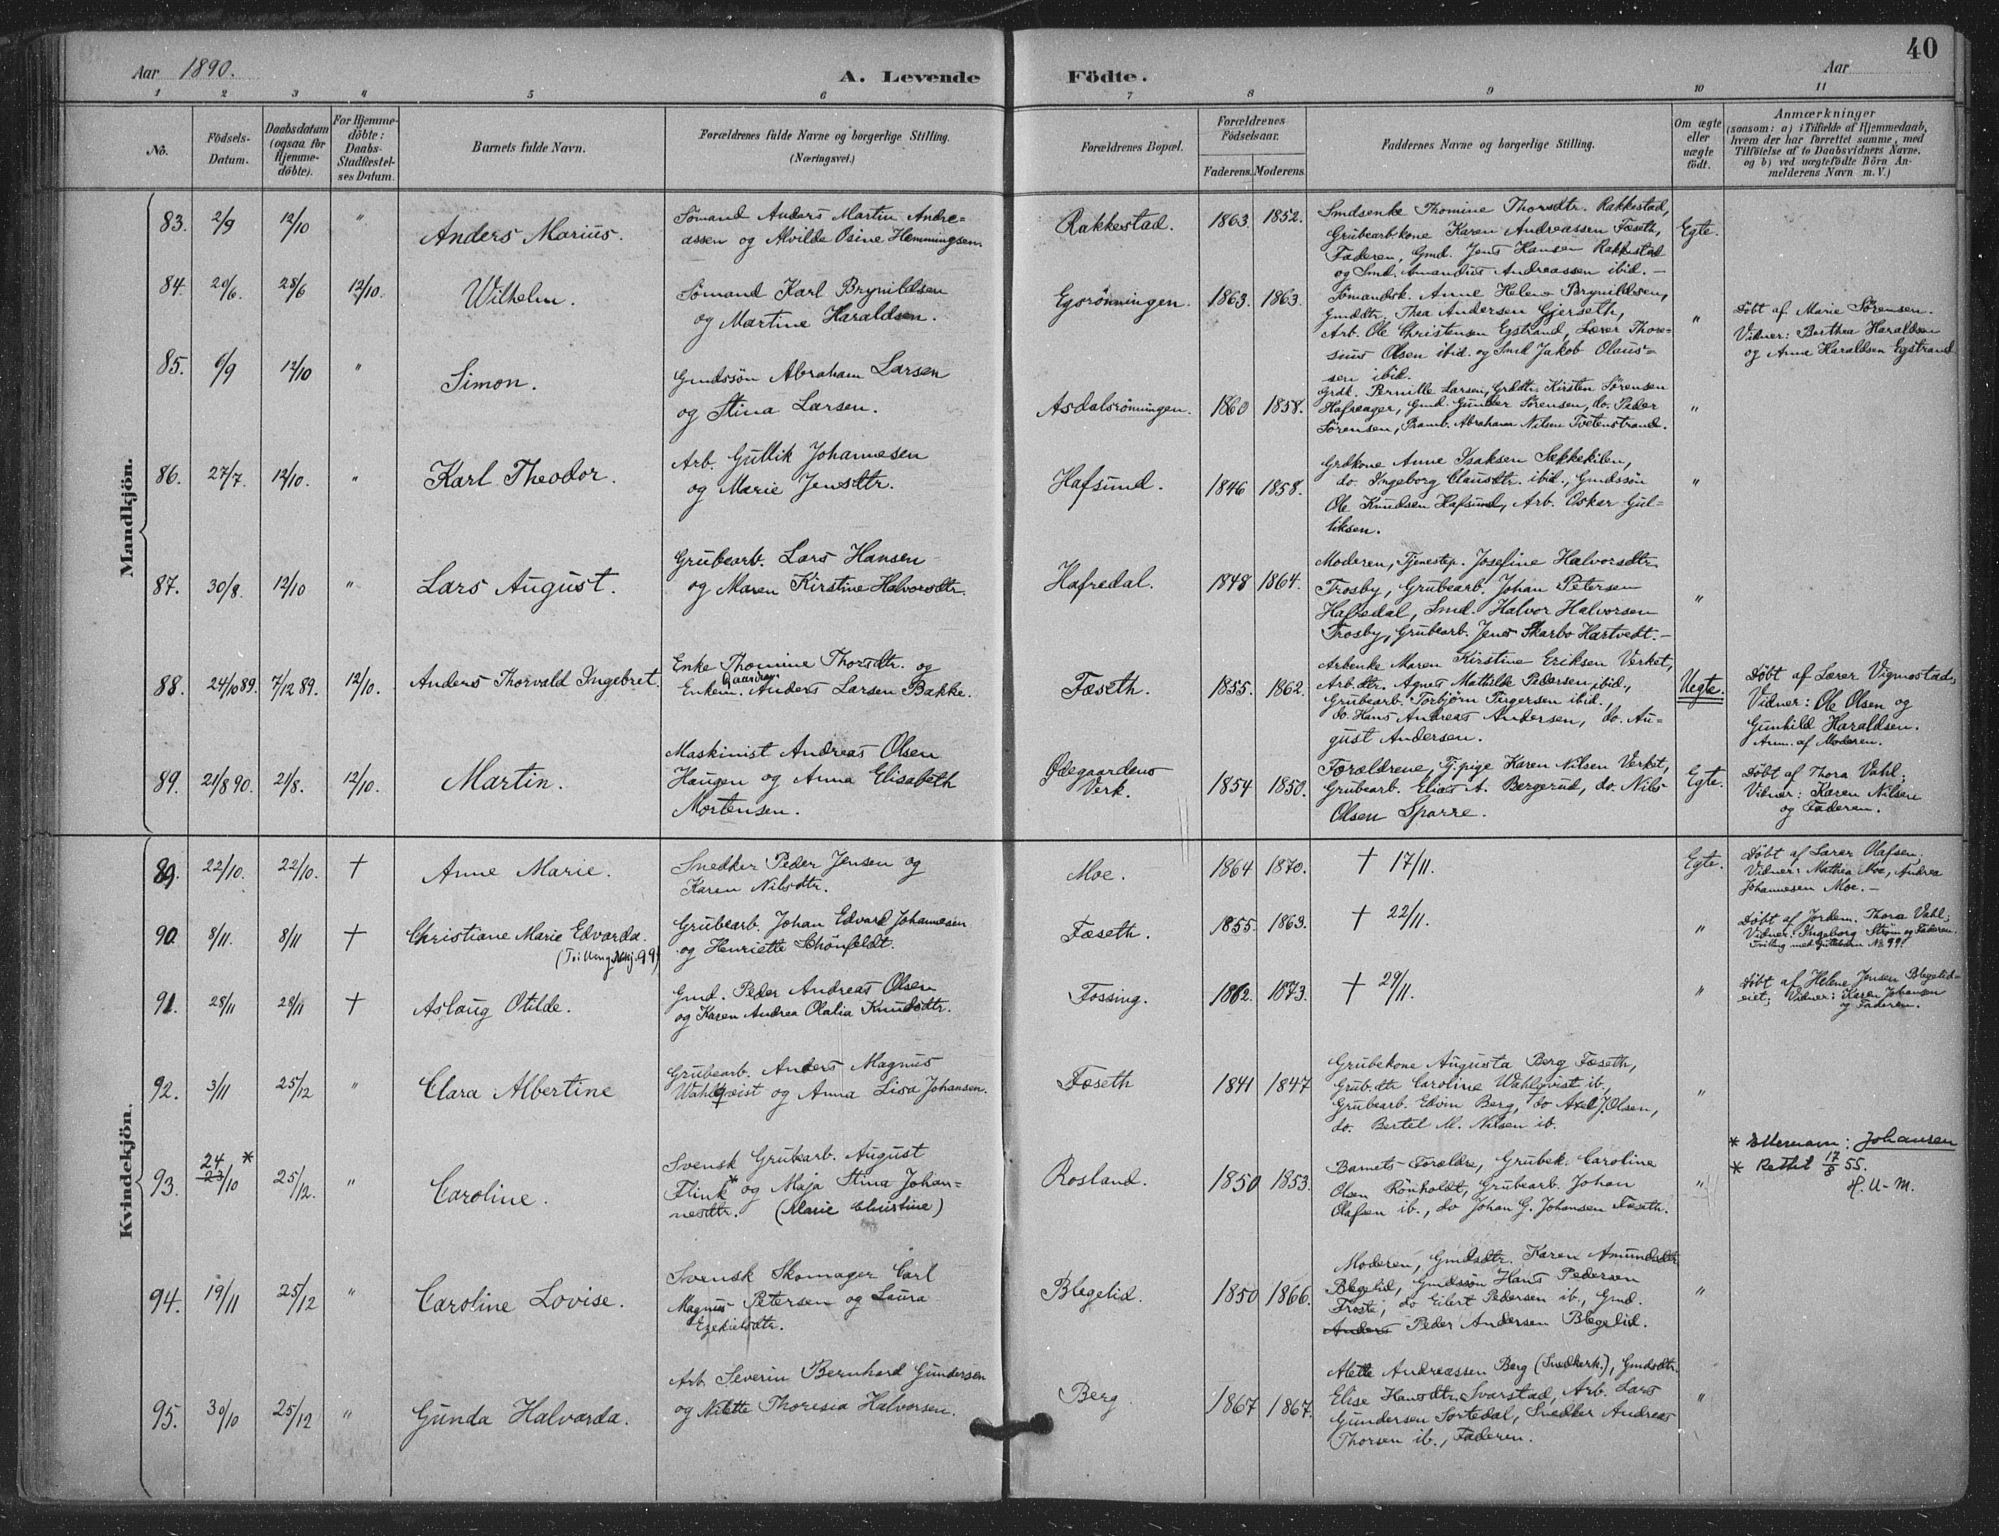 Aar 1890.
A. Levende
Födte.
Aar
40
1 2 3 4 5 6 7 8 9 10 11
No.
Födsels-
Datum.
Daabsdatum
(ogsaa for
Hjemme-
döbte).
For Hjemme-
döbte:
Daabs-
Stadfæstel-
ses Datum.
Barnets fulde Navn.
Forældrenes fulde Navne og borgerlige Stilling.
(Næringsvei.)
Forældrenes Bopæl.
Forældrenes
Födselsaar.
Faderens. Moderens.
Faddernes Navne og borgerlige Stilling.
Om ægte
eller
uægte
födt.
Anmærkninger
(saasom: a) i Tilfælde af Hjemmedaab,
hvem der har forrettet samme, med
Tilföielse af to Daabsvidners Navne,
og b) ved uægtefödte Börn An-
melderens Navn m. V.)
Mandkjön.
83. 2/9 12/10 " Anders Marius.
Sömand Anders Martin Andre-
assen og Alvilde Osine Hemmingsen
Rakkestad. 1863. 1852.
Smedsenke Thomine Thorsdtr. Rakkestad,
Grubearb.kone Karen Andreassen Fæseth,
Faderen, Gmd. Jens Hansen Rakkestad
og Smd. Amandus Andreassen ibid. —
Egte.
84. 20/6. 28/6 12/10. Wilhelm.
Sömand Karl Brynildsen
og Martine Haraldsen.
Egsrönningen. 1863. 1863.
Sömandsk. Anne Helene Brynildsen,
Gmddtr. Thea Andersen Gjerseth,
Arb. Ole Christensen Egstrand, Lærer Thore-
sius Olsen ibid. og Smd Jakob Olaus-
sen ibid.
"
Döbt af Marie Sörensen.
Vidner: Berthea Haraldsen
og Anna Haraldsen Egstrand
85. 6/9 12/10 " Simon.
Gmdssön Abraham Larsen
og Stina Larsen.
Asdalsrönningen. 1860 1858.
Grdk. Pernille Larsen, Grddtr. Kirsten Sörensen
Hafreager, Gmd. Gunder Sörensen, do. Peder
Sörensen, Pramb. Abraham Nilsen Tvetenstrand.
"
86. 27/7. 12/10. " Karl Theodor.
Arb. Gullik Johannesen
og Marie Jensdtr.
Hafsund. 1846 1858.
Grdkone Anne Isaksen Sækkekilen,
do. Ingeborg Clausdtr. ibid., Gmdssön
Ole Knudsen Hafsund, Arb. Oskar Gul-
liksen.
"
87. 30/8. 12/10 " Lars August.
Grubearb. Lars Hansen
og Maren Kirstine Halvorsdtr.
Hafredal. 1848 1864.
Moderen, Tjenestep. Josefine Halvorsdtr.
Trosby, Grubearb. Johan Petersen
Hafredal, Smd. Halvor Halvorsen
Trosby, Grubearb. Jens Skarbo Hartvedt. —
"
88. 24/10 89. 7/12 89. 12/10. Anders Thorvald Ingebret.
Enke Thomine Thorsdtr. og
Gaardm.
Enkem. Anders Larsen Bakke.
Fæseth. 1855. 1862.
Arbenke Maren Kirstine Eriksen Verket,
Arb.dtr. Agnes Mathilde Pedersen ibid.,
Grubearb. Torbjörn Tergersen ibid.,
do. Hans Andreas Andersen, do. Au-
gust Andersen.
Uegte.
Döbt af Lærer Vigmostad,
Vidner: Ole Olsen og
Gunhild Haraldsen.
Anm. af Moderen.
89. 21/8 90. 21/8. 12/10. Martin.
Maskinist Andreas Olsen
Haugen og Anna Elisabeth
Mortensen.
Ödegaardens
Verk. 1854 1850.
Forældrene, Tj.pige Karen Nilsen Verket,
Grubearb. Elias A. Bergerud, do. Nils
Olsen Sparre.
Egte.
Döbt af Thora Vahl;
Vidner: Karen Nilsen
og Faderen.
Kvindekjön.
89. 22/10. 22/10. † Anne Marie.
Snedker Peder Jensen og
Karen Nilsdtr.
Moe. 1864 1870. † 17/11.
Egte.
Döbt af Lærer Olafsen;
Vidner: Mathea Moe, Andrea
Johannesen Moe. —
90. 8/11. 8/11 † Christiane Marie Edvarda.
(Tvilling M.kj. 99)
Grubearb. Johan Edvard Johannesen
og Henriette Schönfeldt.
Fæseth. 1855. 1863. † 22/11.
"
Döbt af Jordem. Thora Vahl;
Vidner: Ingeborg Ström og Faderen.
Tvilling med Guttebarn № 99.
91. 28/11 28/11 † Aslaug Otilde.
Gmd. Peder Andreas Olsen
og Karen Andrea Olalia Knudsdtr.
Fossing. 1862. 1873. † 29/11.
"
Döbt af Helene Jensen Blegelid-
eiet; Vidner: Karen Johansen
og Faderen.
92. 3/11 25/12 " Clara Albertine
Grubearb. Anders Magnus
Wahlqvist og Anna Lisa Johansen.
Fæseth 1841 1847
Grubekone Augusta Berg Fæseth,
Grub.dtr Caroline Wahlqvist ib.,
Grubearb. Edvin Berg, do Axel J. Olsen,
do. Bertel M. Nilsen ib.
"
93. 24 * 23/10 25/12. " Caroline.
Svensk Grubearb. August
Flink* og Maja Stina Johan-
nesdtr. (Marie Christine)
Rosland. 1850 1853.
Barnets Forældre, Grubek. Caroline
Olsen Rönholdt, Grubearb. Johan
Olafsen ib., do Johan G. Johansen Fæseth.
"
* Etternavn: Johansen
* Rettet 17/8 55.
H. U-M.
94. 19/11 25/12 " Caroline Lovise.
Svensk Skomager Carl
Magnus Petersen og Laura
Ezekielsdtr.
Blegelid. 1850 1866.
Moderen, Gmdsdtr. Karen Amundsdtr
Blegelid, Gmdssön Hans Pedersen
Froste, do Eilert Pedersen ib., Gmd.
Anders Peder Andersen Blegelid.
"
95. 30/10 25/12 " Gunda Halvarda.
Arb Severin Bernhard Gundersen
og Nilette Thoresia Halvorsen.
Berg. 1867 1867.
Alette Andreassen Berg (Snedkerk.), Gmdsdtr.
Elise Hansdtr. Svarstad, Arb. Lars
Gundersen Sortedal, Snedker Andreas
Thorsen ib., Faderen.
"